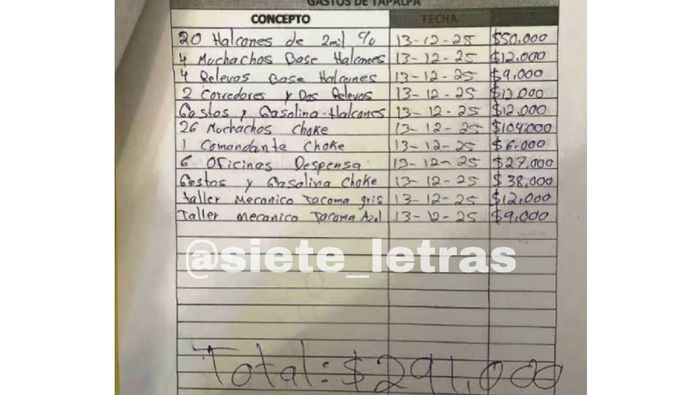 GASTOS DE TAPALPA
CONCEPTO FECHA
20 Halcones de 2mil % 13-12-25 $50,000
4 Muchachos Base Halcones 13-12-25 $12,000
4 Relevos Base Halcones 13-12-25 $9,000
2 Corredores y Dos Relevos 13-12-25 $13,000
Gastos y Gasolina Halcones 13-12-25 $12,000
26 Muchachos Choke 13-12-25 $104,000
1 Comandante Choke 13-12-25 $6,000
6 Oficinas Despensa 13-12-25 $27,000
Gostos y Gasolina Choke 13-12-25 $38,000
Taller Mecanico Tacoma gris 13-12-25 $12,000
Taller mecanico Tacoma Azul 13-12-25 $9,000
@siete_letras
Total: $291,000